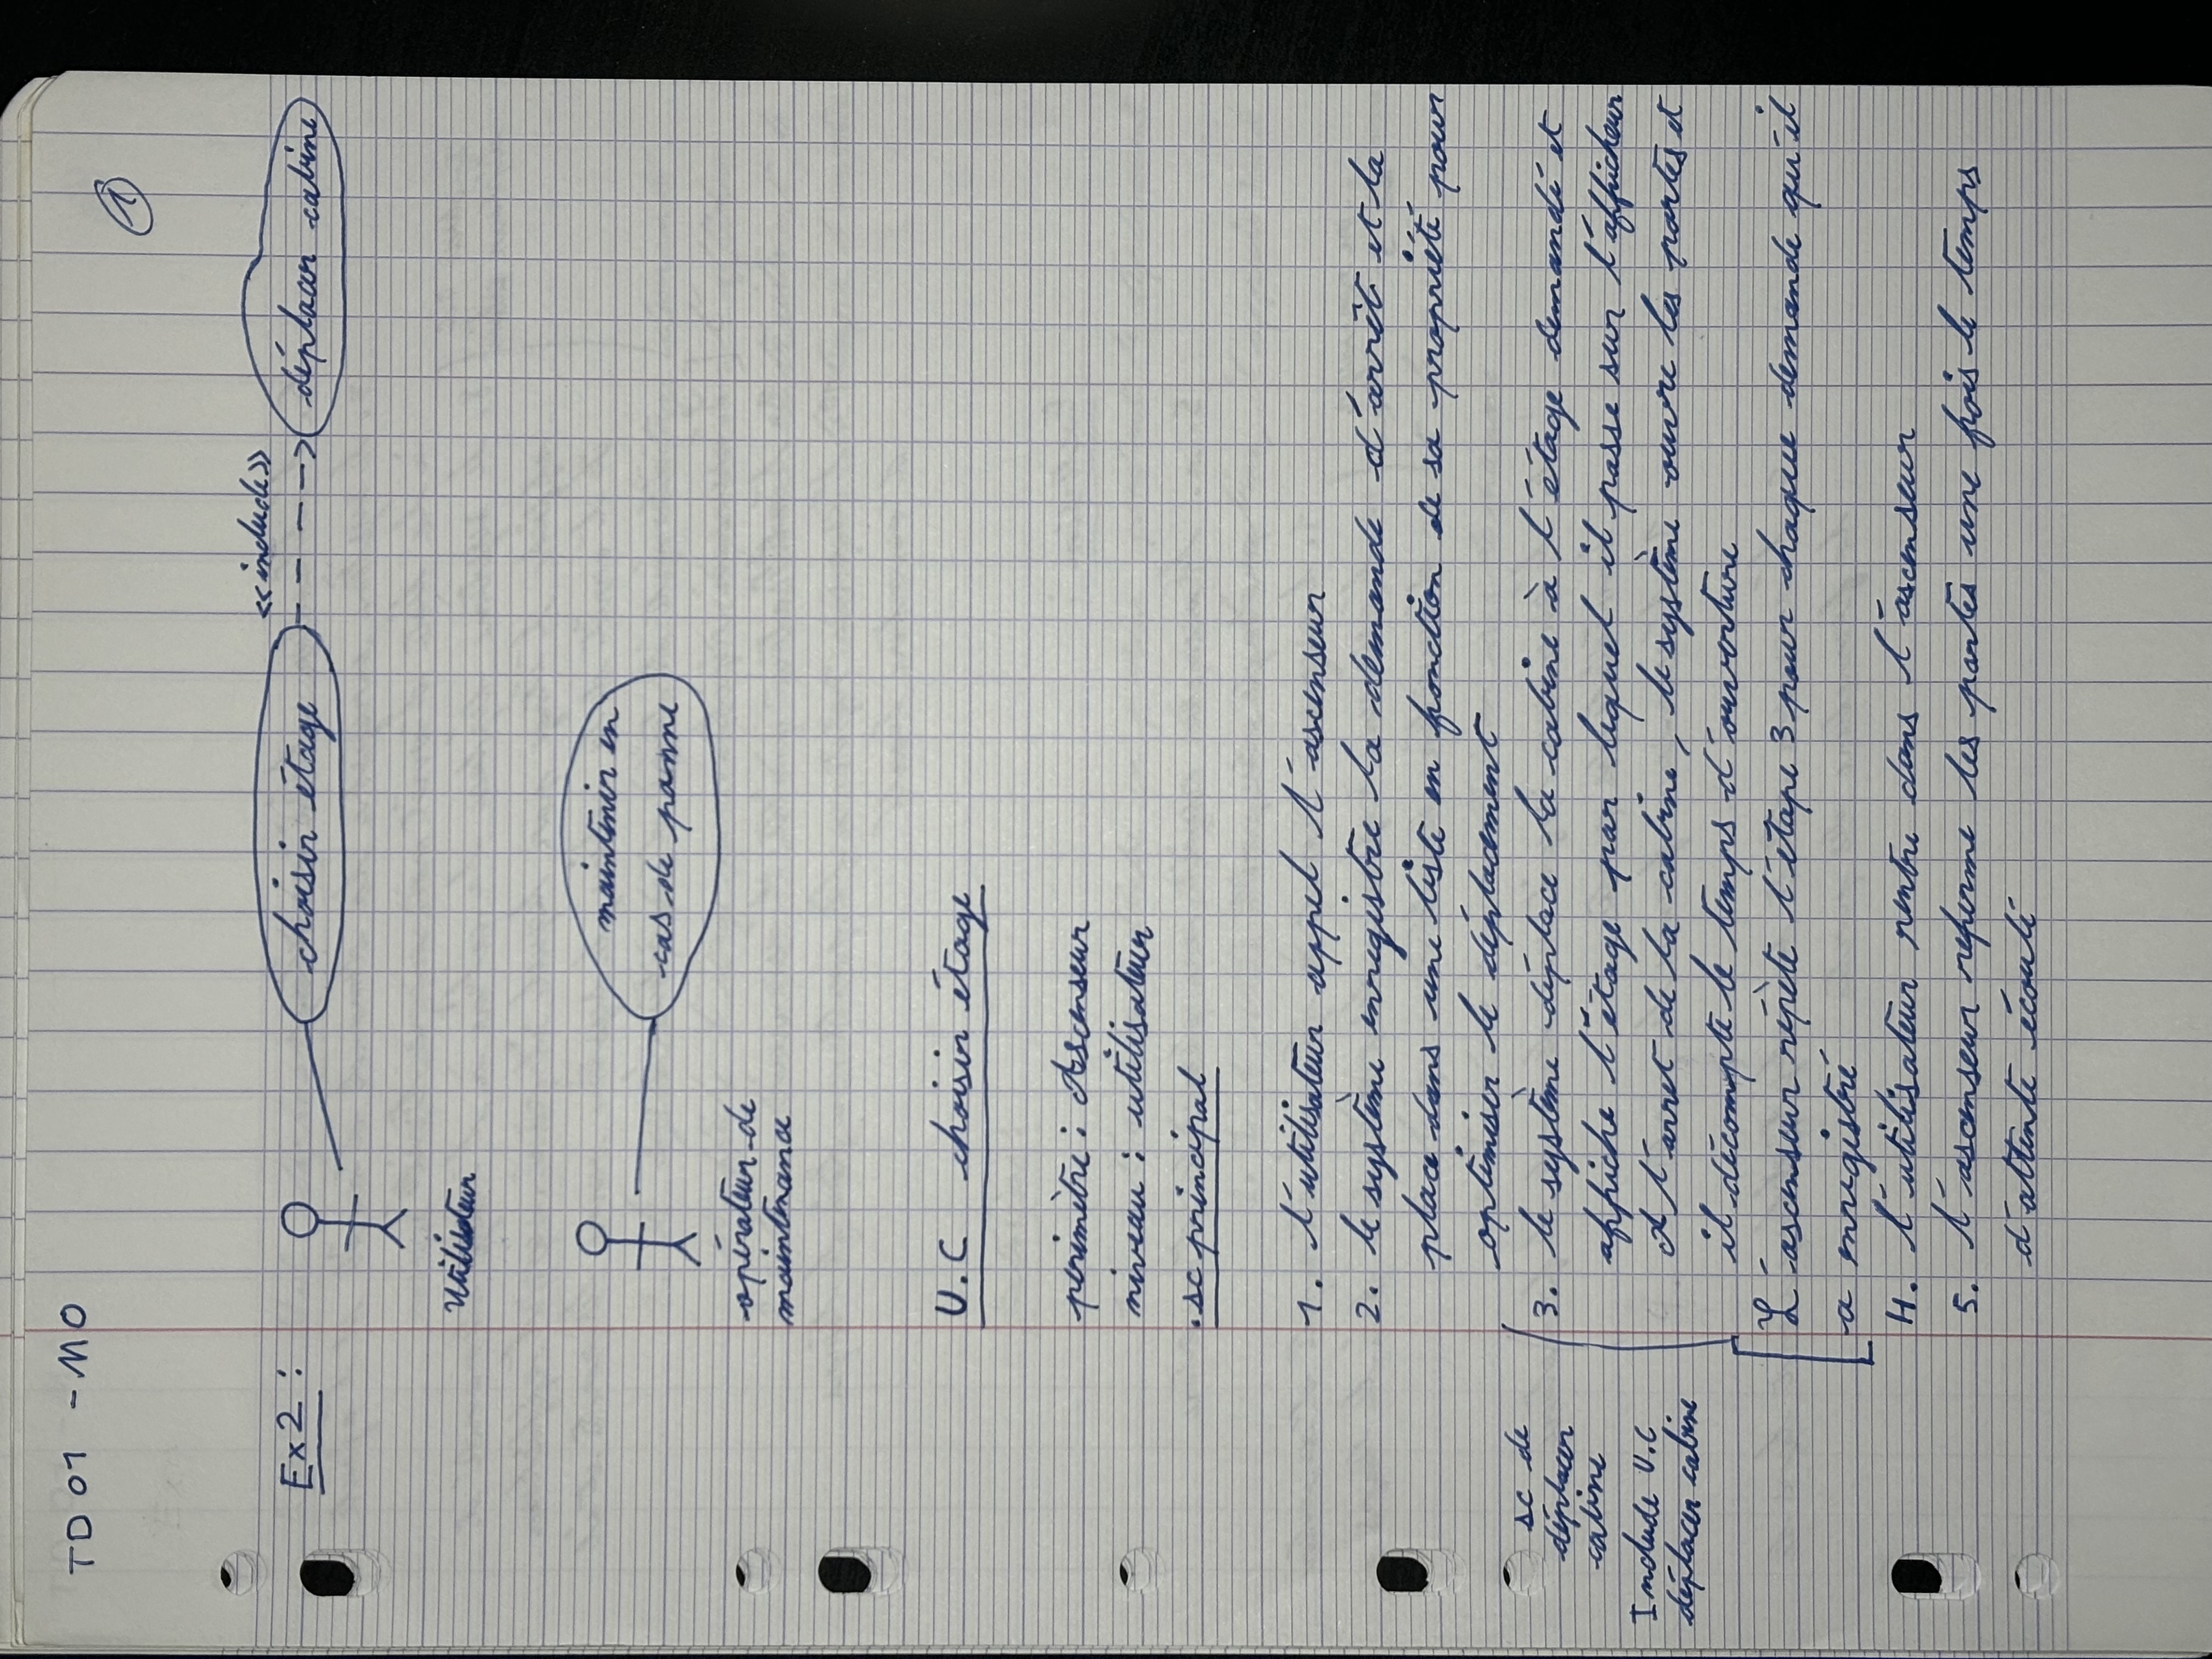 TD 01 - MO
1
Ex2 :
<<include>>
choisir étage
déplacer cabine
utilisateur
maintenir en
cas de panne
opérateur de
maintenance
U.C choisir étage
perimètre : Ascenseur
niveau : utilisateur
. sc principal
1. l'utilisateur appel l'ascenseur
2. le système enregistre la demande d'arrêt et la
place dans une liste en fonction de sa propriété pour
optimiser le déplacement
sc de
déplacer
cabine
Include U.C
déplacer cabine
3. le système déplace la cabine à l'étage demandé et
affiche l'étage par lequel il passe sur l'afficheur
A l'arret de la cabine, le système ouvre les portes et
il décompte le temps d'ouverture
L'ascenseur répète l'étape 3 pour chaque demande qu'il
a enregistré
4. l'utilisateur rentre dans l'ascenseur
5. l'ascenseur referme les portes une fois le temps
d'attente écoulé